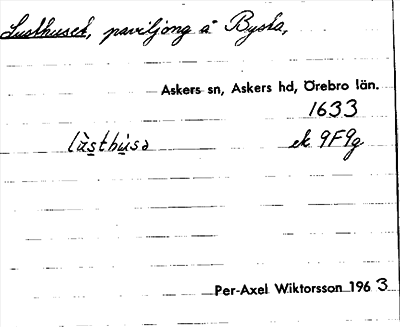 Lusthuset, paviljong å Bysta,
Askers sn, Askers hd, Örebro län.
1633
lùsthu̇sə ek 9F9g
Per-Axel Wiktorsson 1963